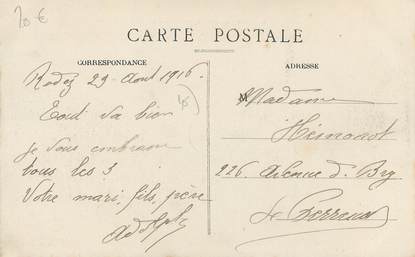 20 €
CARTE POSTALE
CORRESPONDANCE
ADRESSE
Rodez 29 Aout 1916.
Tout va bien
je vous embrasse
tous les 3
Votre mari, fils, père
Adolphe
Madame
226 Avenue d. Bry
Le Perreux